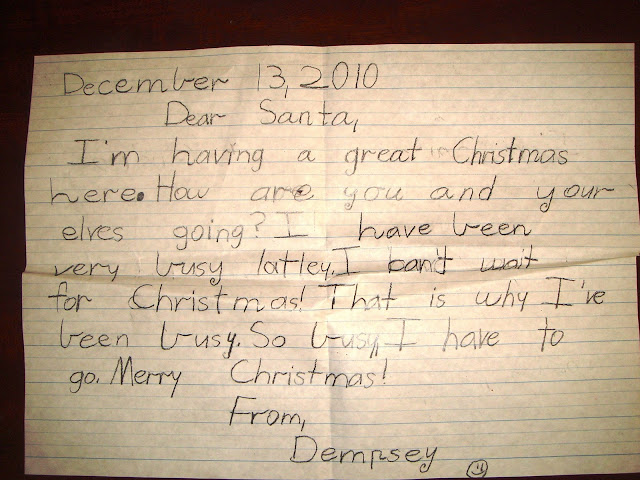 December 13, 2010
Dear Santa,
I'm having a great Christmas
here. How are you and your
elves going? I have been
very busy latley. I can't wait
for Christmas! That is why I've
been busy. So busy, I have to
go. Merry Christmas!
From,
Dempsey